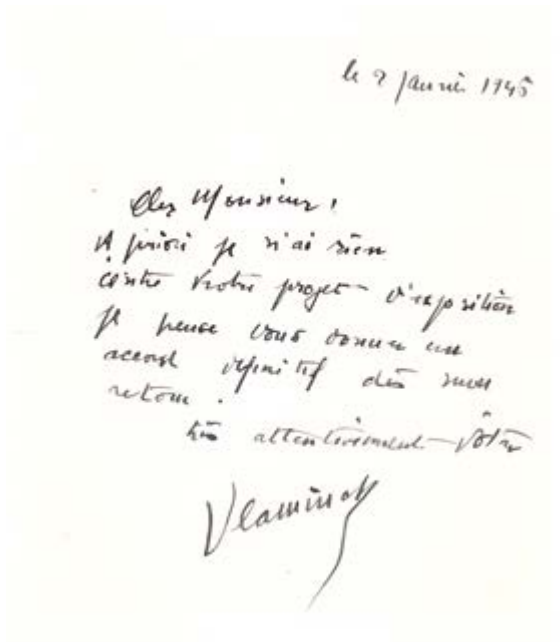 le 2 Janvier 1945
Cher Monsieur,
A priori je n'ai rien
contre votre projet d'exposition
je pense vous donner un
accord définitif dès mon
retour.
très attentivement vôtre
Vlaminck